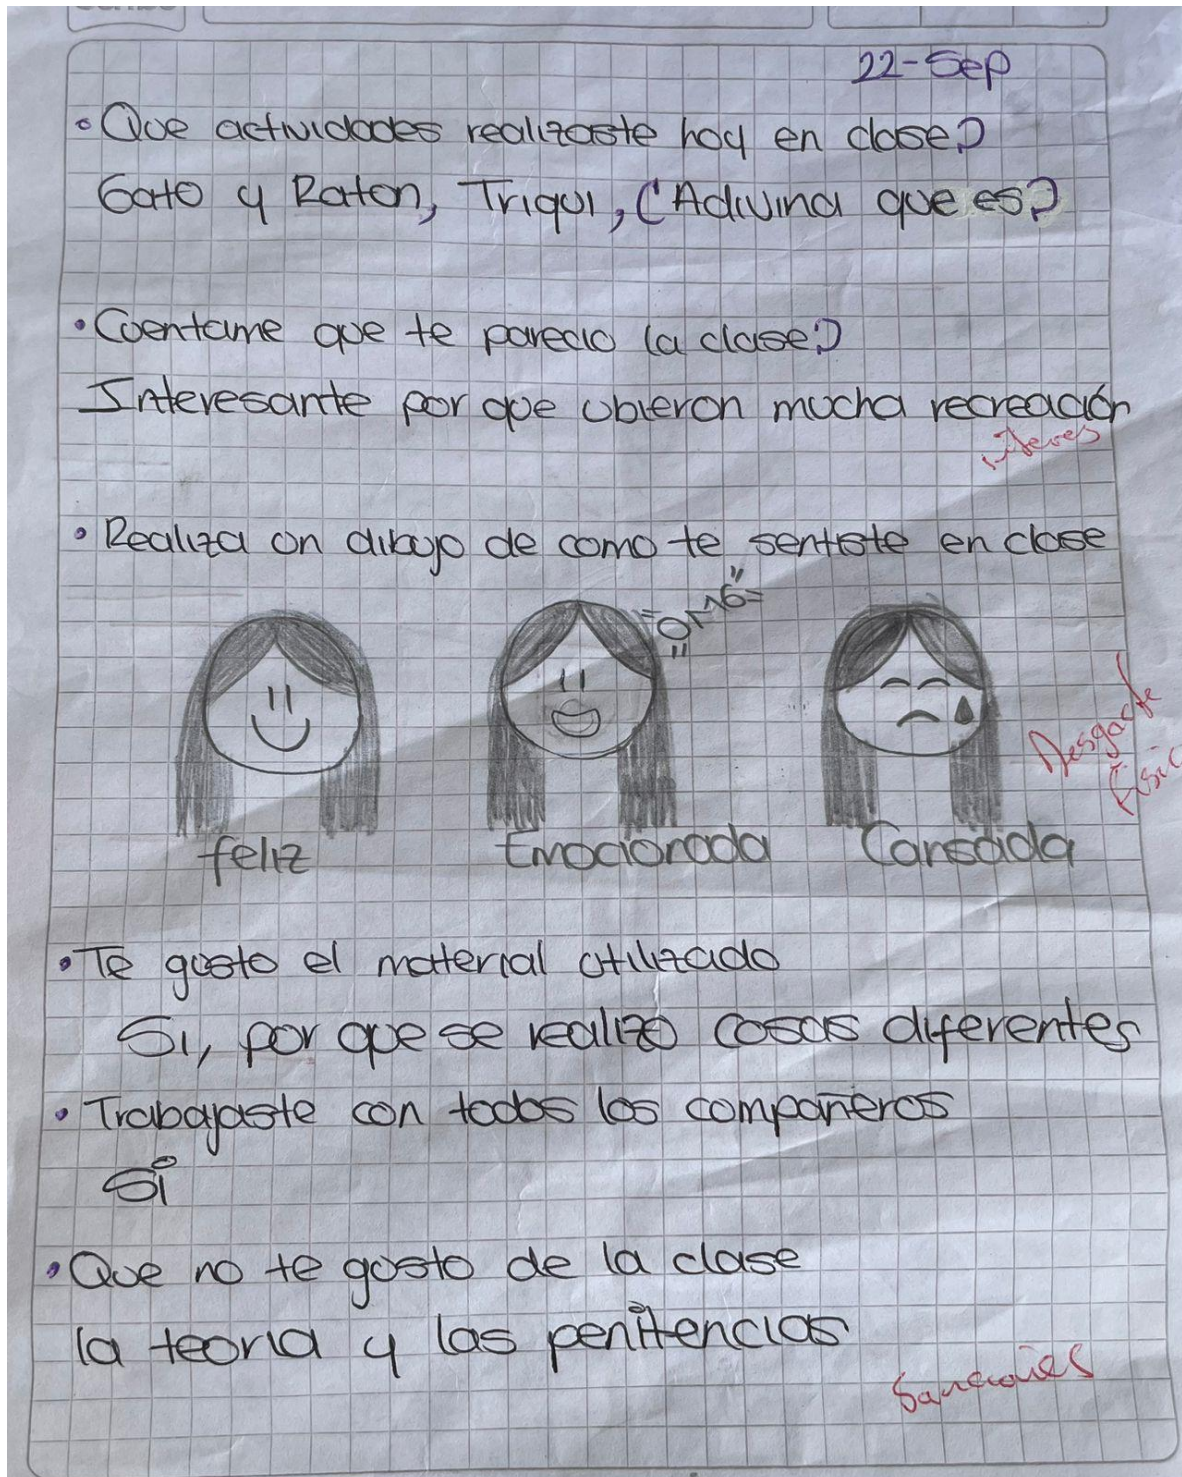 22-Sep
• Que actividades realizaste hoy en clase?
Gato y Raton, Triqui, ¿Adivina que es?
• Cuentame que te parecio la clase?
Interesante por que ubieron mucha recreación
• Realiza un dibujo de como te sentiste en clase
"OMG"
feliz Emocionada Cansada
Desgaste
Físic
• Te gusto el material utilizado
Si, por que se realizo cosas diferentes
• Trabajaste con todos los compañeros
Si
• Que no te gusto de la clase
la teoria y las penitencias
Sanciones